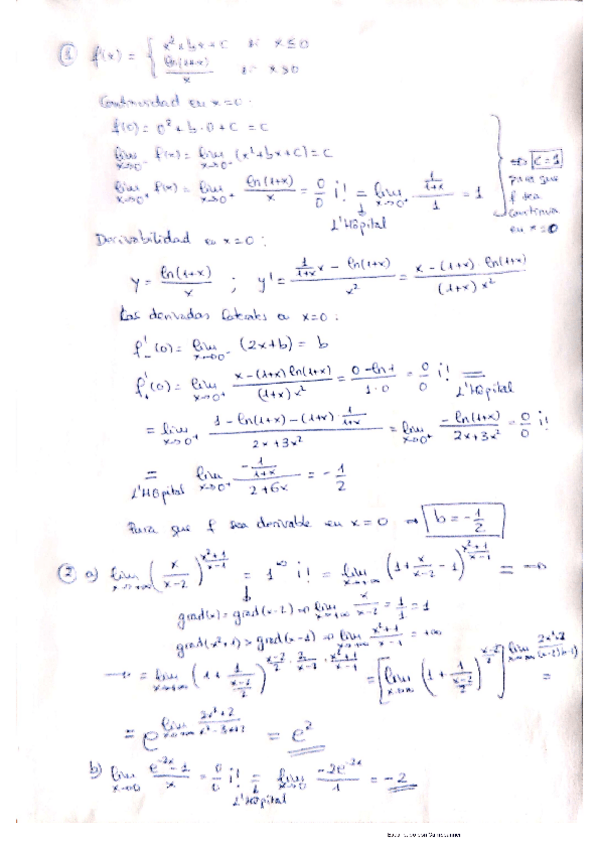 ① f(x) = { x² + bx + c si x ≤ 0
ln(1+x)/x si x > 0
Continuidad en x=0:
f(0) = 0² + b·0 + c = c
lim x→0⁻ f(x) = lim x→0⁻ (x²+bx+c) = c
lim x→0⁺ f(x) = lim x→0⁺ ln(1+x)/x = 0/0 ¡! = lim x→0⁺ (1/(1+x))/1 = 1
L'Hôpital
⇒ c=1
para que
f sea
continua
en x=0
Derivabilidad en x=0:
y = ln(1+x)/x ; y' = (1/(1+x) x − ln(1+x))/x² = (x − (1+x)·ln(1+x))/((1+x)x²)
Las derivadas laterales en x=0:
f'₋(0) = lim x→0⁻ (2x+b) = b
f'₊(0) = lim x→0⁺ (x−(1+x)ln(1+x))/((1+x)x²) = (0−ln 1)/(1·0) = 0/0 ¡! =
L'Hôpital
= lim x→0⁺ (1−ln(1+x)−(1+x)·1/(1+x))/(2x+3x²) = lim x→0⁺ −ln(1+x)/(2x+3x²) = 0/0 ¡!
= lim x→0⁺ (−1/(1+x))/(2+6x) = −1/2
L'Hôpital
Para que f sea derivable en x=0 ⇒ b = −1/2
② a) lim x→+∞ (x/(x−2))^((x²+1)/(x−1)) = 1^∞ ¡! = lim x→+∞ (1 + x/(x−2) − 1)^((x²+1)/(x−1)) = →
grad(x) = grad(x−2) ⇒ lim x→+∞ x/(x−2) = 1/1 = 1
grad(x²+1) > grad(x−1) ⇒ lim x→+∞ (x²+1)/(x−1) = +∞
→ = lim x→+∞ (1 + 1/((x−2)/2))^((x−2)/2 · 2/(x−2) · (x²+1)/(x−1)) = [lim x→+∞ (1 + 1/((x−2)/2))^((x−2)/2)]^(lim x→+∞ (2x²+2)/((x−2)(x−1))) =
= e^(lim x→+∞ (2x²+2)/(x²−3x+2)) = e²
b) lim x→0 (e^(−2x) − 1)/x = 0/0 ¡! = lim x→0 (−2e^(−2x))/1 = −2
L'Hôpital